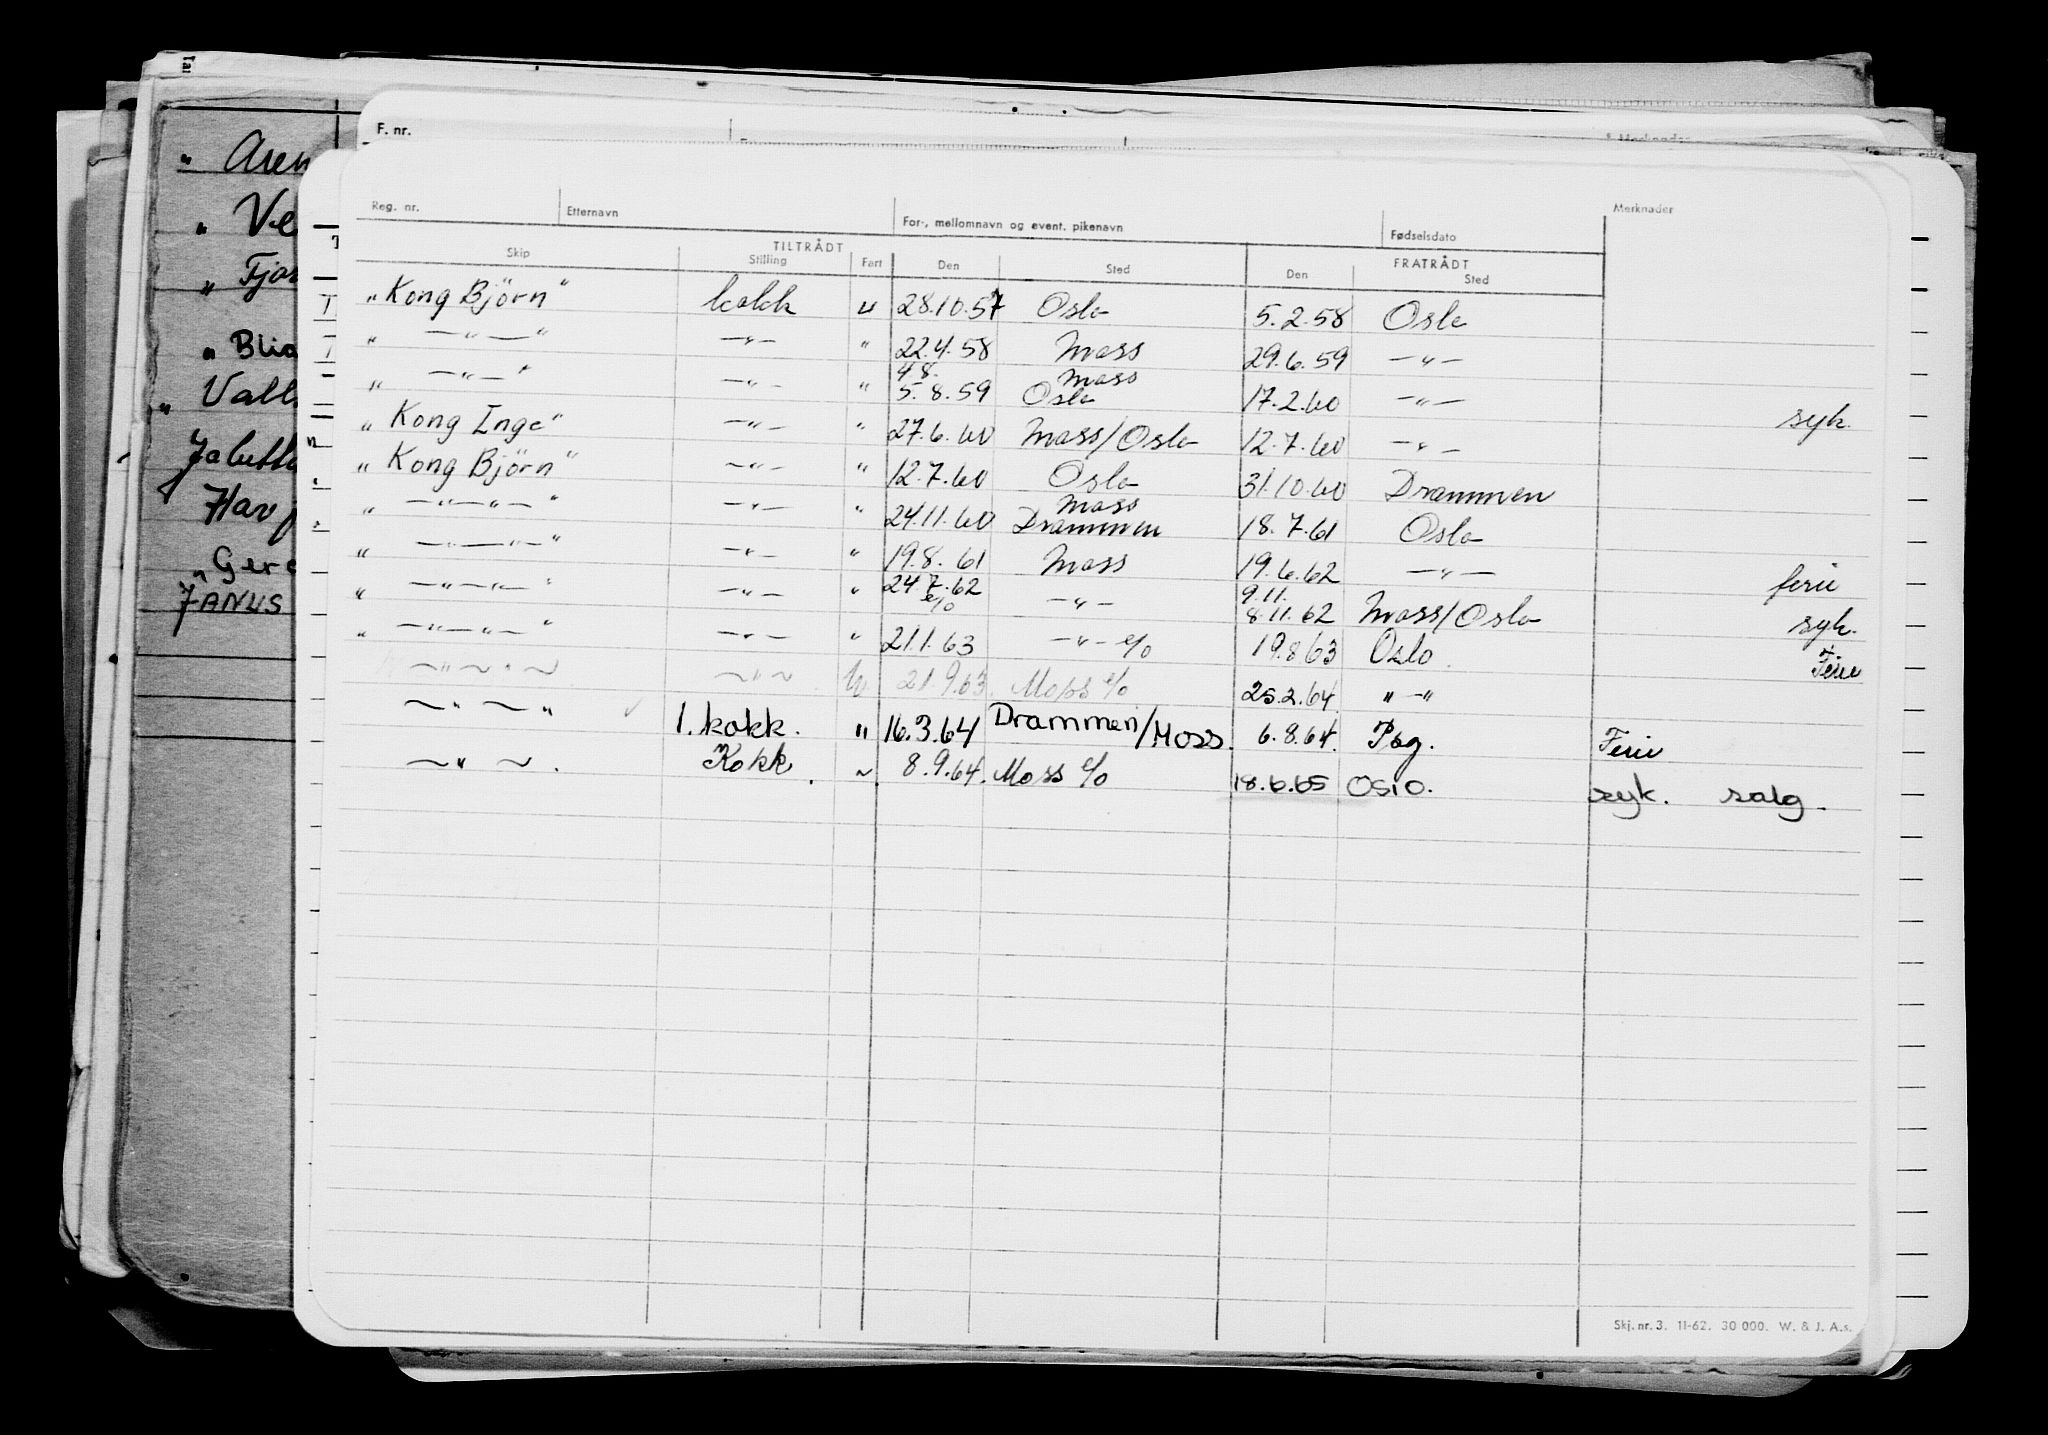 Tal
F. nr.
Merknader
" Aren
" Ve
" Fjor
" Blia
" Vall
Jalutta
Hav
" Gere
JANUS
Reg. nr. Etternavn For-, mellomnavn og event. pikenavn Fødselsdato Merknader
TILTRÅDT FRATRÅDT
Skip Stilling Fart Den Sted Den Sted
"Kong Björn" kokk u 28.10.57 Oslo 5.2.58 Oslo
" —"—" —"— " 22.4.58 Moss 29.6.59 —"—
4.8. Moss
" —"—" —"— " 5.8.59 Oslo 17.2.60 —"— syk.
"Kong Inge" —"— " 27.6.60 Moss/Oslo 12.7.60 —"—
"Kong Björn" —"— " 12.7.60 Oslo 31.10.60 Drammen
Moss
" —"—"—" —"— " 24.11.60 Drammen 18.7.61 Oslo
" —"—"—" —"— " 19.8.61 Moss 19.6.62 —"— ferie
9.11.
" —"—"—" —"— " 24.7.62 e/o —"— 8.11.62 Moss/Oslo syk.
" —"—"—" —"— " 21.1.63 —"— e/o 19.8.63 Oslo. Ferie
~"~"~ ~"~ u 21.9.63. Moss e/o 25.2.64. "—"
~"~" 1. kokk. " 16.3.64 Drammen/Moss. 6.8.64. Psg. Ferie
~"~. Kokk. ~ 8.9.64. Moss e/o 18.6.65 Oslo. syk. salg.
Skj. nr. 3. 11-62. 30 000. W. & J. A.s.